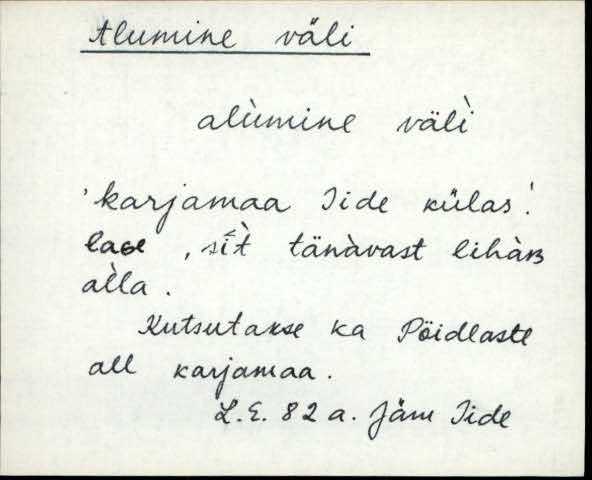 Alumine väli
alùmine välì
'karjamaa Iide külas!
lage, sìt tänàvast
àlla.
Kutsutakse ka Pöidlaste
all karjamaa.
L.E. 82 a. Jäm Iide